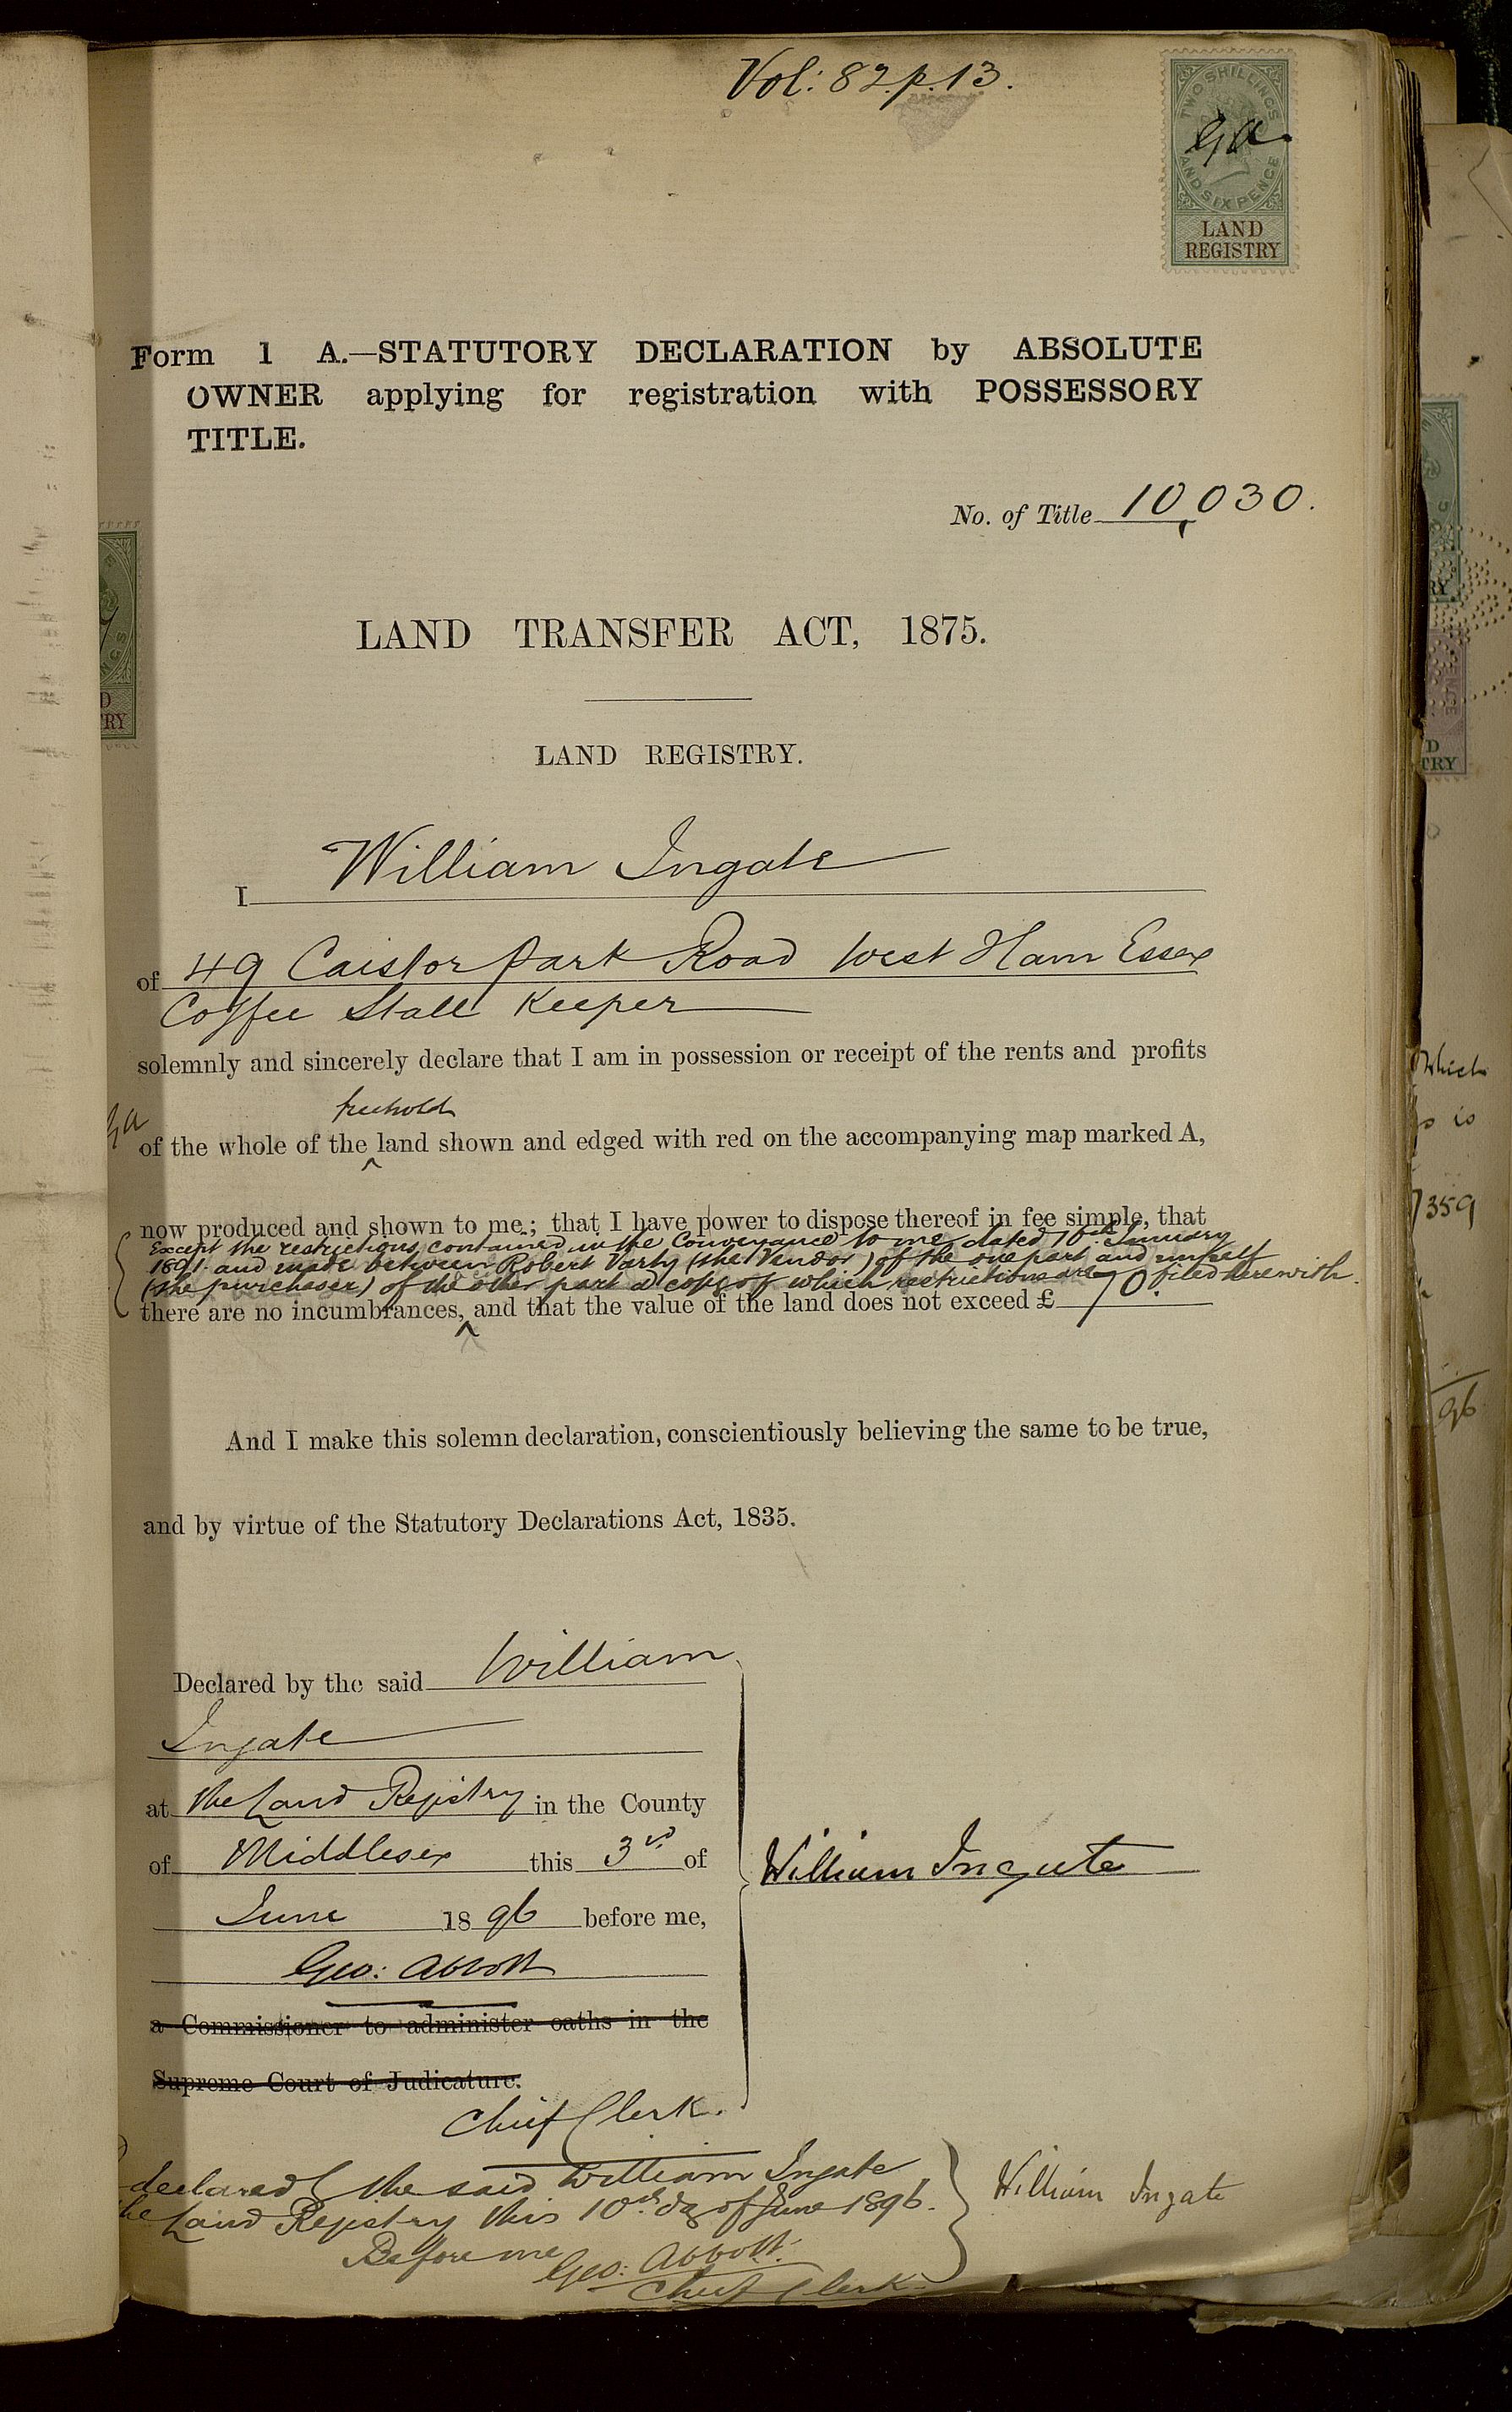 Vol: 82. p. 13.
TWO SHILLINGS
AND SIX PENCE
LAND
REGISTRY
Form 1 A.—STATUTORY DECLARATION by ABSOLUTE
OWNER applying for registration with POSSESSORY
TITLE.
No. of Title 10,030.
LAND TRANSFER ACT, 1875.
LAND REGISTRY.
I William Ingate
of 49 Caistor Park Road West Ham Essex
Coffee Stall Keeper
solemnly and sincerely declare that I am in possession or receipt of the rents and profits
freehold
of the whole of the land shown and edged with red on the accompanying map marked A,
now produced and shown to me; that I have power to dispose thereof in fee simple, that
Except the restrictions contained in the Conveyance to me dated 10th January
1891 and made between Robert Varty (the Vendor) of the one part and myself
(the purchaser) of the other part a copy of which restrictions are filed herewith.
there are no incumbrances, and that the value of the land does not exceed £ 70.
And I make this solemn declaration, conscientiously believing the same to be true,
and by virtue of the Statutory Declarations Act, 1835.
Declared by the said William
Ingate
at the Land Registry in the County
of Middlesex this 3rd of
June 1896 before me,
Geo: Abbott
a Commissioner to administer oaths in the
Supreme Court of Judicature.
Chief Clerk.
William Ingate
declared the said William Ingate
Land Registry this 10th day of June 1896.
Before me
Geo: Abbott
Chief Clerk
William Ingate
which
is
7359
96